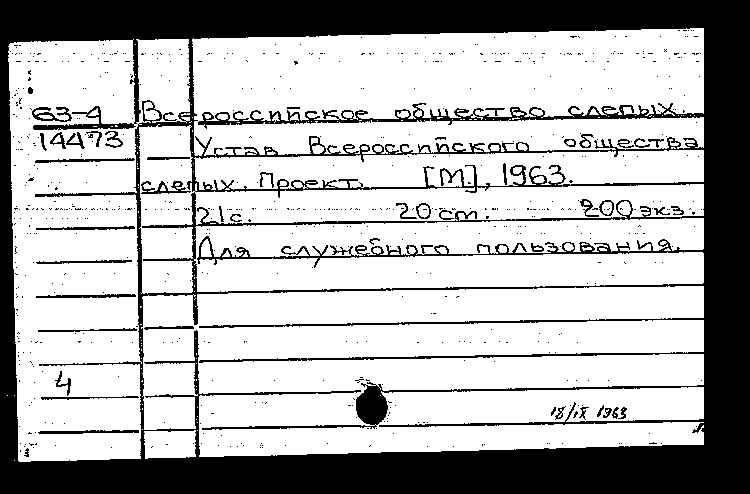 63-4 Всероссийское общество слепых.
14473 Устав Всероссийского общества
слепых. Проект. [М.], 1963.
21с. 20 см. 200 экз.
Для служебного пользования.
4
18/IX 1963